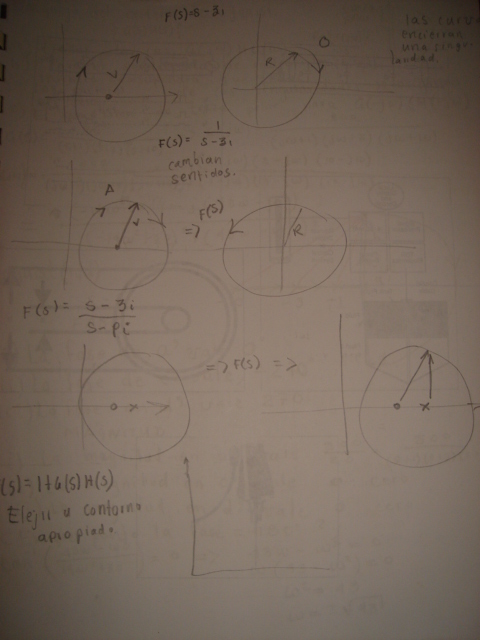 F(s)=s-3i
las curvas
encierran
una singu
laridad.
V
R
F(s)= 1/(s-3i)
cambian
sentidos.
A
V
=> F(s)
R
F(s)= (s-3i)/(s-Pi)
=> F(s) =>
(s)=1+G(s)H(s)
Elejir u contorno
apropiado.